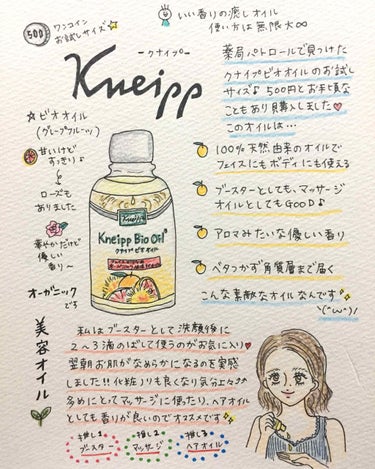 500 ワンコイン
お試しサイズ
いい香りの癒しオイル
使い方は無限大∞
ークナイプー
Kneipp
薬局パトロールで見つけた
クナイプビオオイルのお試し
サイズ♪500円とお手頃な
こともあり購入しました♥
このオイルは…
☆ビオオイル
(グレープフルーツ)
甘いけど
すっきり♪
ローズも
ありました
華やかだけど
優しい
香り〜
オーガニック
でう
美容オイル
Kneipp
Kneipp Bio Oil
クナイプビオオイル
100%天然由来のオイルで
フェイスにもボディにも使える
ブースターとしても、マッサージ
オイルとしてもGOOD♪
アロマみたいな優しい香り
ベタつかず角質層まで届く
こんな素敵なオイルなんです
\(^ω^)/
私はブースターとして洗顔後に
2〜3滴のばして使うのがお気に入り♥
翌朝お肌がなめらかになるのを実感
しました!!化粧ノリも良くなり気分上々♪
多めにとってマッサージに使ったり、ヘアオイル
としても香りが良いのでオススメです
推し1
ブースター
推し2
マッサージ
推し3
ヘアオイル